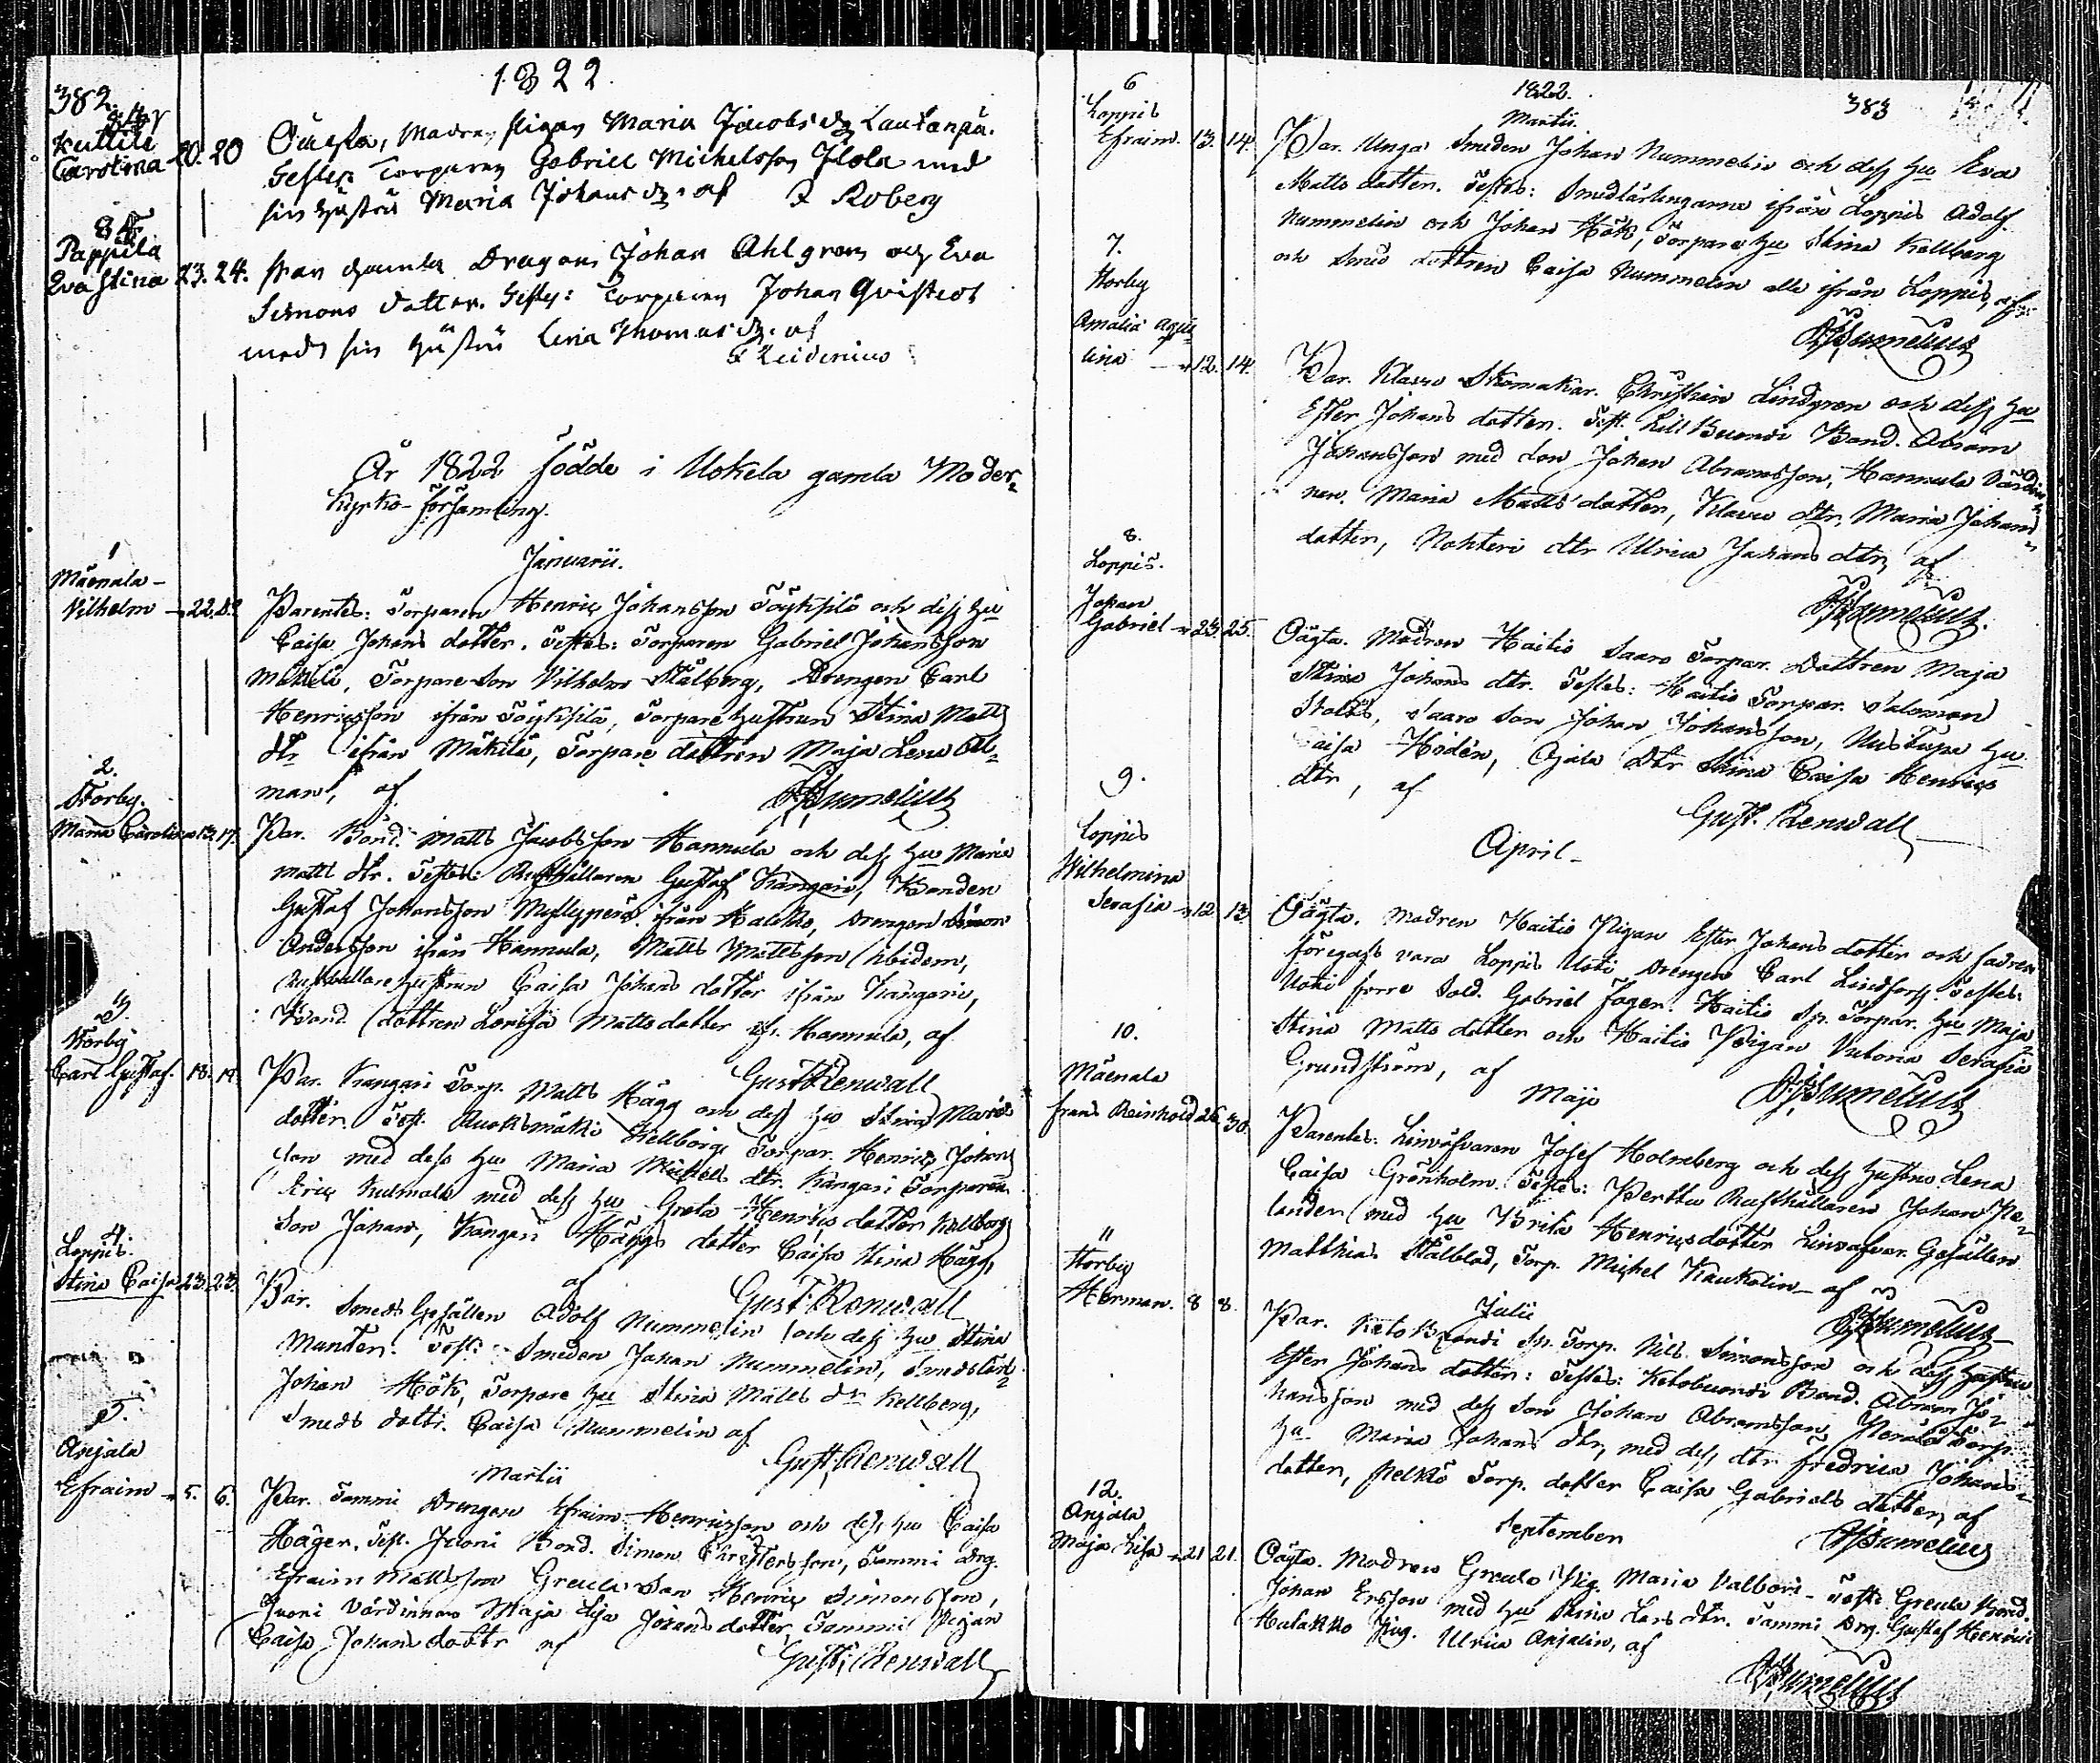 382.
1822.
84
Kuttila
Carolina 20. 20
Oäckta, Madren, Pigan Maria Jacobs d:r Lautanpä.
Testes Torparen Gabriel Michelsson Ilola med
sin hustru Maria Johans d:r af Roberg
85
Pappila
Eva Stina 23. 24.
Johan Ahlgren och Eva
Simons dotter. Testes: Torparen Johan Qvistrot
med sin hustru Lena Thomas d:r af
Reidenius
År 1822 födde i Uskela gamla Moder-
kyrko-församling.
Januarii.
1
Mäenala
Vilhelm 22.
Parentes: Torparen Henric Johansson Töykkilä och dess hu
Caisa Johans dotter. Testes: Torparen Gabriel Johansson
Mäkilä, Torpare Son Vilhelm Stålberg, Drengen Carl
Henricsson ifrån Töykkilä, Torpare hustrun Stina Matts
dtr ifrån Mäkilä, Torpare dottren Maja Lena
man, af
2.
Storby.
Maria Carolina 13. 17.
Par. Bond. Matts Jacobsson Hannula och dess hu Maria
Matts dtr. Testes: Rusthållaren Gustaf Kangari, Bonden
Gustaf Johansson Myllyperä ifrån Haukko, Drengen Simon
Andersson ifrån Hannula, Matts Mattsson ibidem,
Rusthållare hustrun Caisa Johans dotter ifrån Kangari,
Bond dottren Lovisa Matts dotter ifr. Hannula, af
Gust Renwall
3.
Storby
Carl Gustaf. 18. 19.
Par. Kangari Torp. Matts Hägg och dess hu Stina Matts
dotter. Test. Ruoksmäki Kellberg, Torpar. Henric Johans
son med dess hu Maria Michels dtr. Kangari Torparen
Eric Kulmala med dess hu Greta Henrics dotter Kellbergs
Son Johan, Kangari Häggs dotter Caisa Stina Hägg,
af Gust. Renwall
4.
Loppis.
Stina Caisa 23. 23.
Par. Smeds Gesällen Adolf Nummelin och dess hu Stina
Munter. Test: Smeden Johan Nummelin, Smedslär-
Johan Hök, Torpare hu Stina Matts dr Kellberg,
Smeds dottr. Caisa Nummelin af
Gust. Renwall
Martii
5.
Anjala
Efraim 5. 6.
Par. Tammi Drengen Efraim Henricsson och dess hu Caisa
Häger. Test. Juoni Bond. Simon Christersson, Tammi Drg.
Efraim Mattsson Greula Son Henric Simonsson,
Juoni Värdinnan Maja Lisa Johans dotter, Tammi Pigan
Caisa Johans dottr af
Gust. Renwall
1822. 383
Martii.
6
Loppis
Efraim. 13. 14.
Par. Unga Smeden Johan Nummelin och dess hu Eva
Matts dotter. Testes: Smedlärlingarne ifrån Loppis Adolf
Nummelin och Johan Hök, Torpare hu Stina Kellberg
och Smed dottren Caisa Nummelin alla ifrån Loppis, af
7.
Storby
Amalia Aqui
lina 12. 14.
Par. Klavu Skomakar. Christian Lindgren och dess hu
Ester Johans dotter. Test. Lill Buondi Bond. Abram
Johansson med son Johan Abramsson, Hannula Värdin-
nan Maria Matts dotter, Klavu dtr. Maria Johans
dotter, Nohteri dtr Ulrica Johans dtr, af
8.
Loppis.
Johan
Gabriel 23. 25.
Oägta. Modren Haitis Saaro Torpar. Dottren Maja
Stina Johans dtr. Testes: Haitis Torpar. Salomon
Stolts, Saaro son Johan Johansson, hu
Caisa Hoden, Ojala Dtr Stina Caisa Henrics
dtr, af
Gust. Renwall
April
9.
Loppis
Wilhelmina
Serafia 12. 13.
Oägta. Modren Haitis Pigan Ester Johans dotter och fadren
föregafs vara Loppis Uoti Drengen Carl Lindfors. Testes:
Uoti förre Sold. Gabriel Fager. Haitis Sp. Torpar. hu Maja
Stina Matts dotter och Haitis Pigan Victoria Serafia
Grundström, af
Maji
10.
Mäenala
Frans Reinhold 26. 30.
Parentes: Linväfvaren Josef Holmberg och dess hustru Lena
Caisa Grönholm. Testes: Perttu Rusthållaren Johan
lander med hu Brita Henricsdotter Linväfvar. Gesällen
Matthias Stålblad, Torp. Michel Kaukolin af
Julii
11
Storby
Herman. 8 8.
Par. Keto Buondi Sp. Torp. Nils Simonsson och dess hustru
Ester Johans dotter: Testes: Ketobuondi Bond. Abram Jo-
hansson med dess Son Johan Abramsson, Torp.
hu Maria Johans dtr, med dess dtr Fredrica Johans-
dotter, Pelkö Torp. dotter Caisa Gabriels dotter, af
September
12.
Anjala
Maja Lisa 21 21.
Oägta. Modren Greula Pig. Maria Valbori. Test: Greula Bond.
Johan Ersson med hu Stina Lars dtr. Tammi Drg. Gustaf Henric
Halakko Pig. Ulrica Anjalin, af